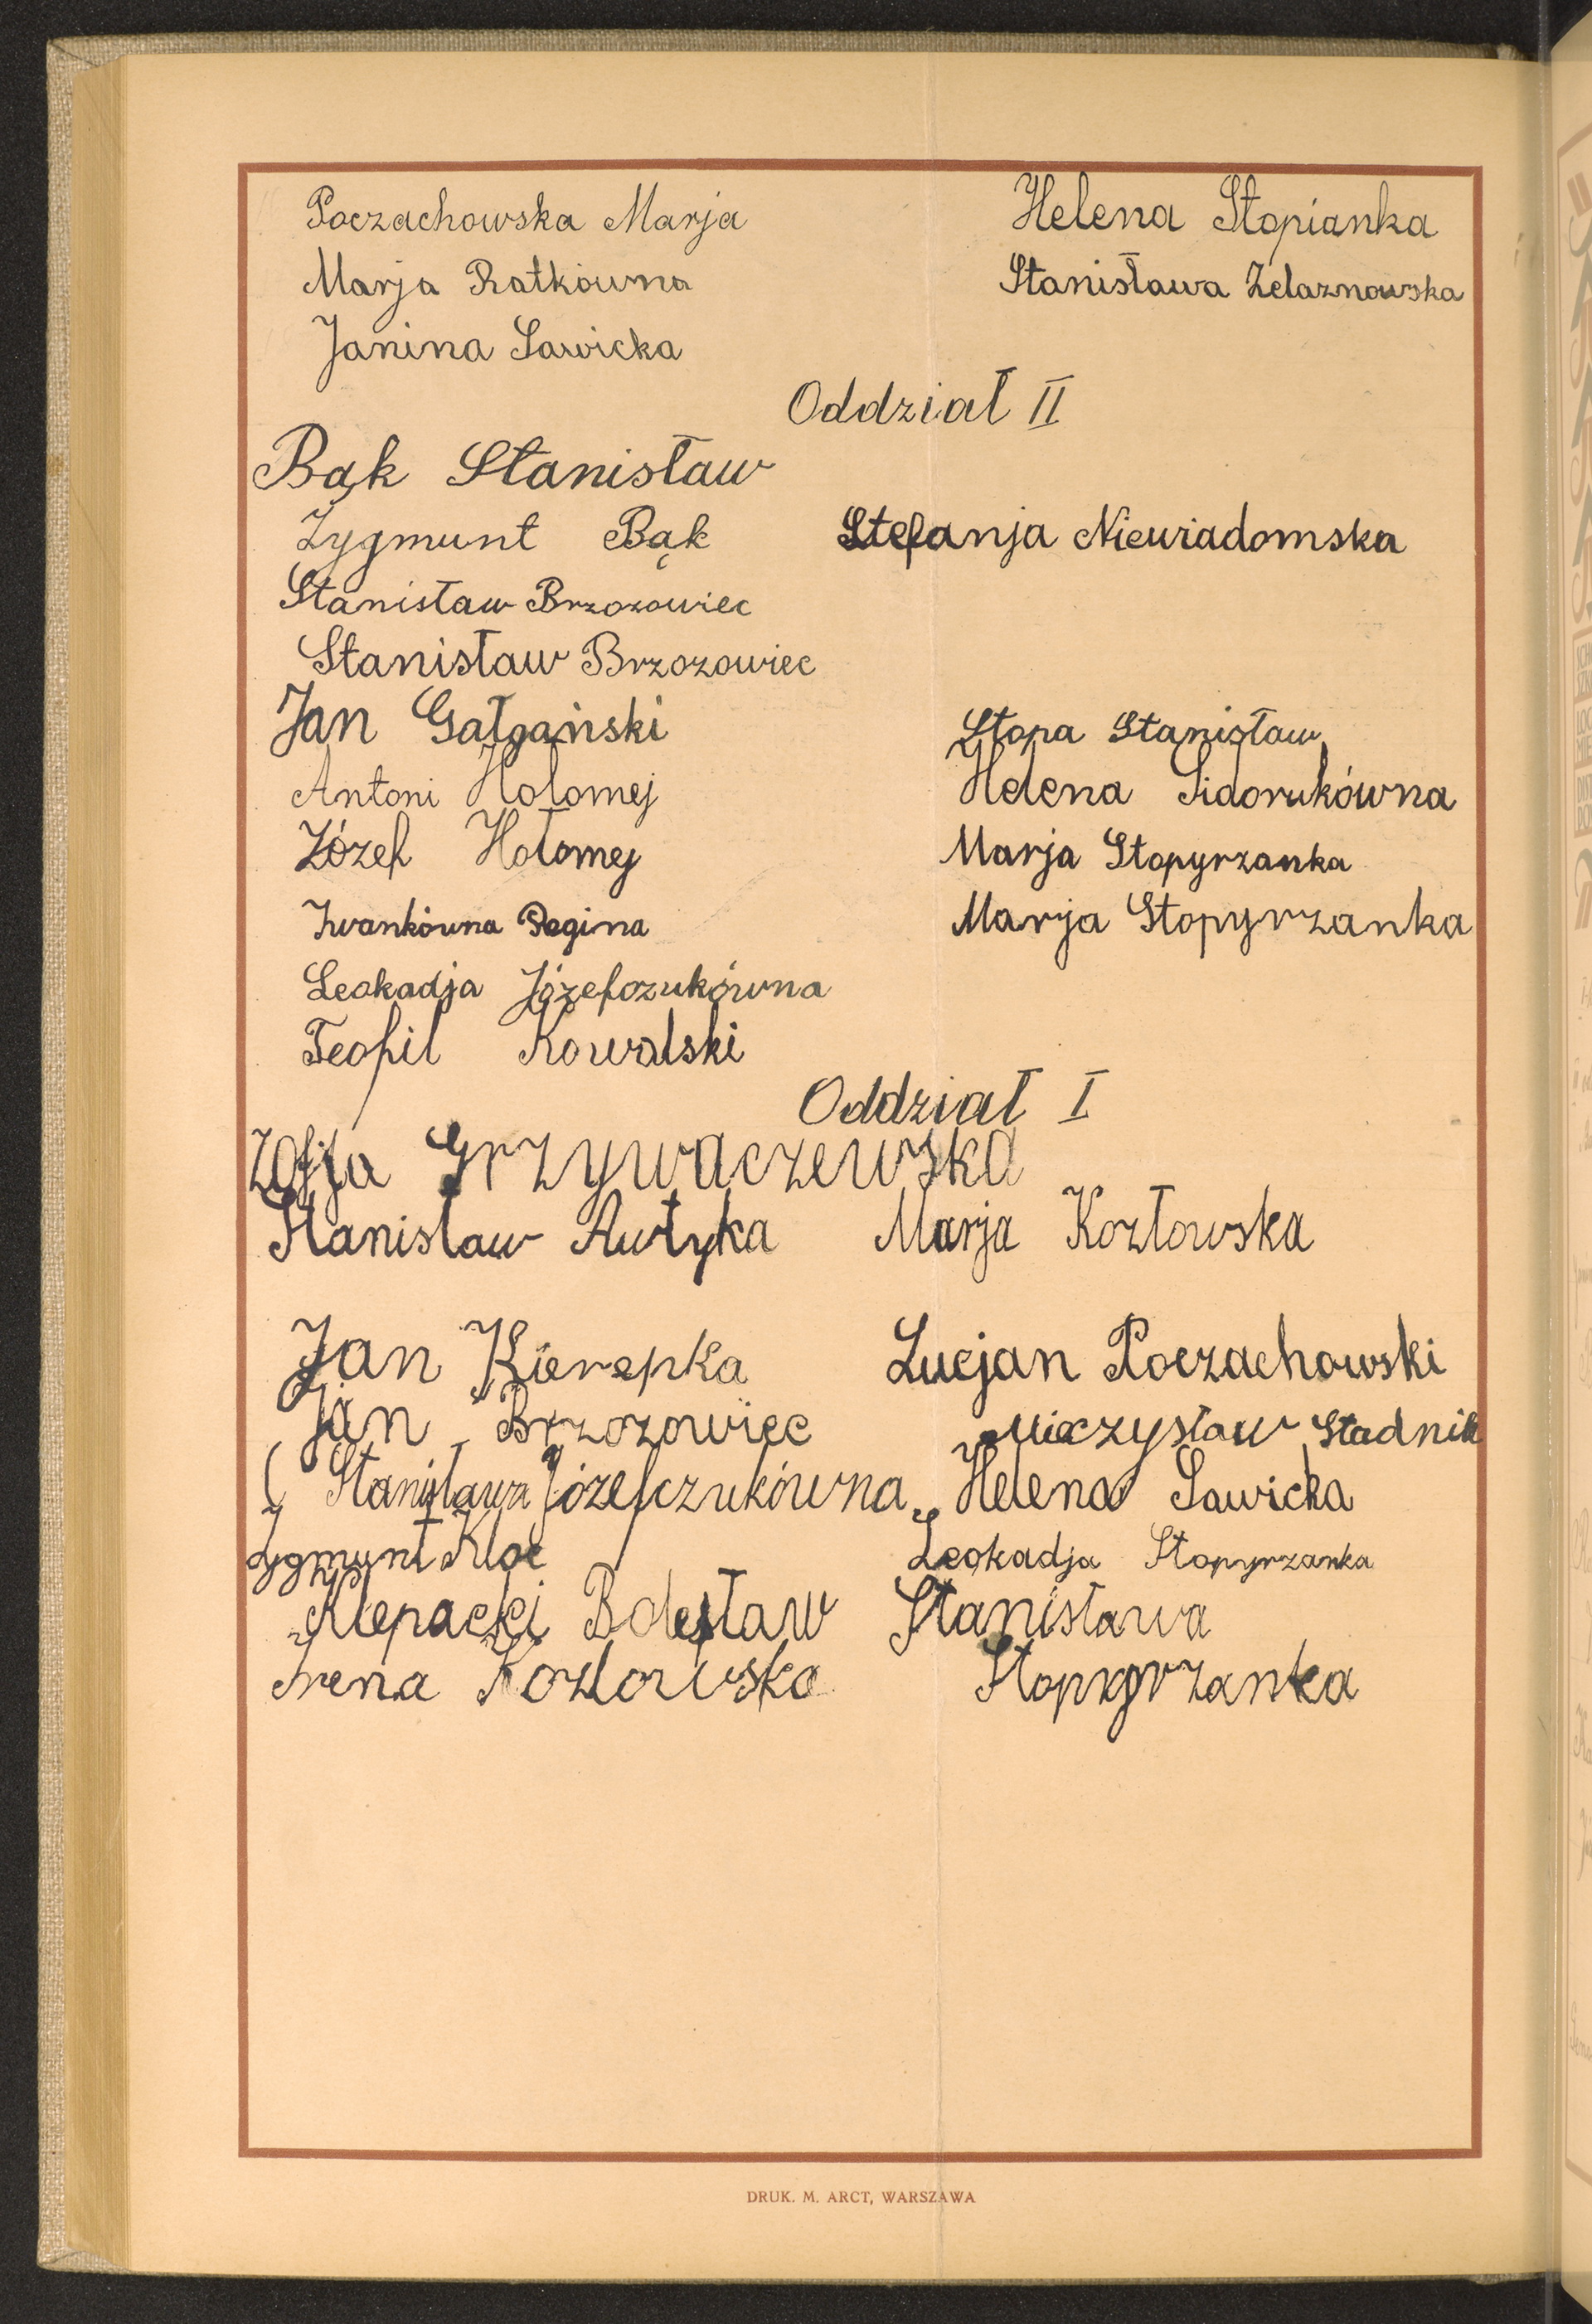 Poczachowska Marja
Marja Ratkówna
Janina Sawicka
Helena Stopianka
Stanisława Żelaznowska
Oddział II
Bąk Stanisław
Zygmunt Bąk
Stanisław Brzozowiec
Stanisław Brzozowiec
Jan Gałgański
Antoni Hołomej
Józef Hołomej
Iwankówna Regina
Leokadja Józefczukówna
Teofil Kowalski
Stefanja Niewiadomska
Stopa Stanisław
Helena Sidorukówna
Marja Stopyrzanka
Marja Stopyrzanka
Oddział I
Zofja Grzywaczewska
Stanisław Awtyka
Jan Kierepka
Jan Brzozowiec
Stanisława Józefczukówna
Zygmunt Kloc
Klepacki Bolesław
Irena Kozłowska
Marja Kozłowska
Lucjan Poczachowski
Mieczysław Stadnik
Helena Sawicka
Leokadja Stopyrzanka
Stanisława
Stopyrzanka
DRUK. M. ARCT, WARSZAWA